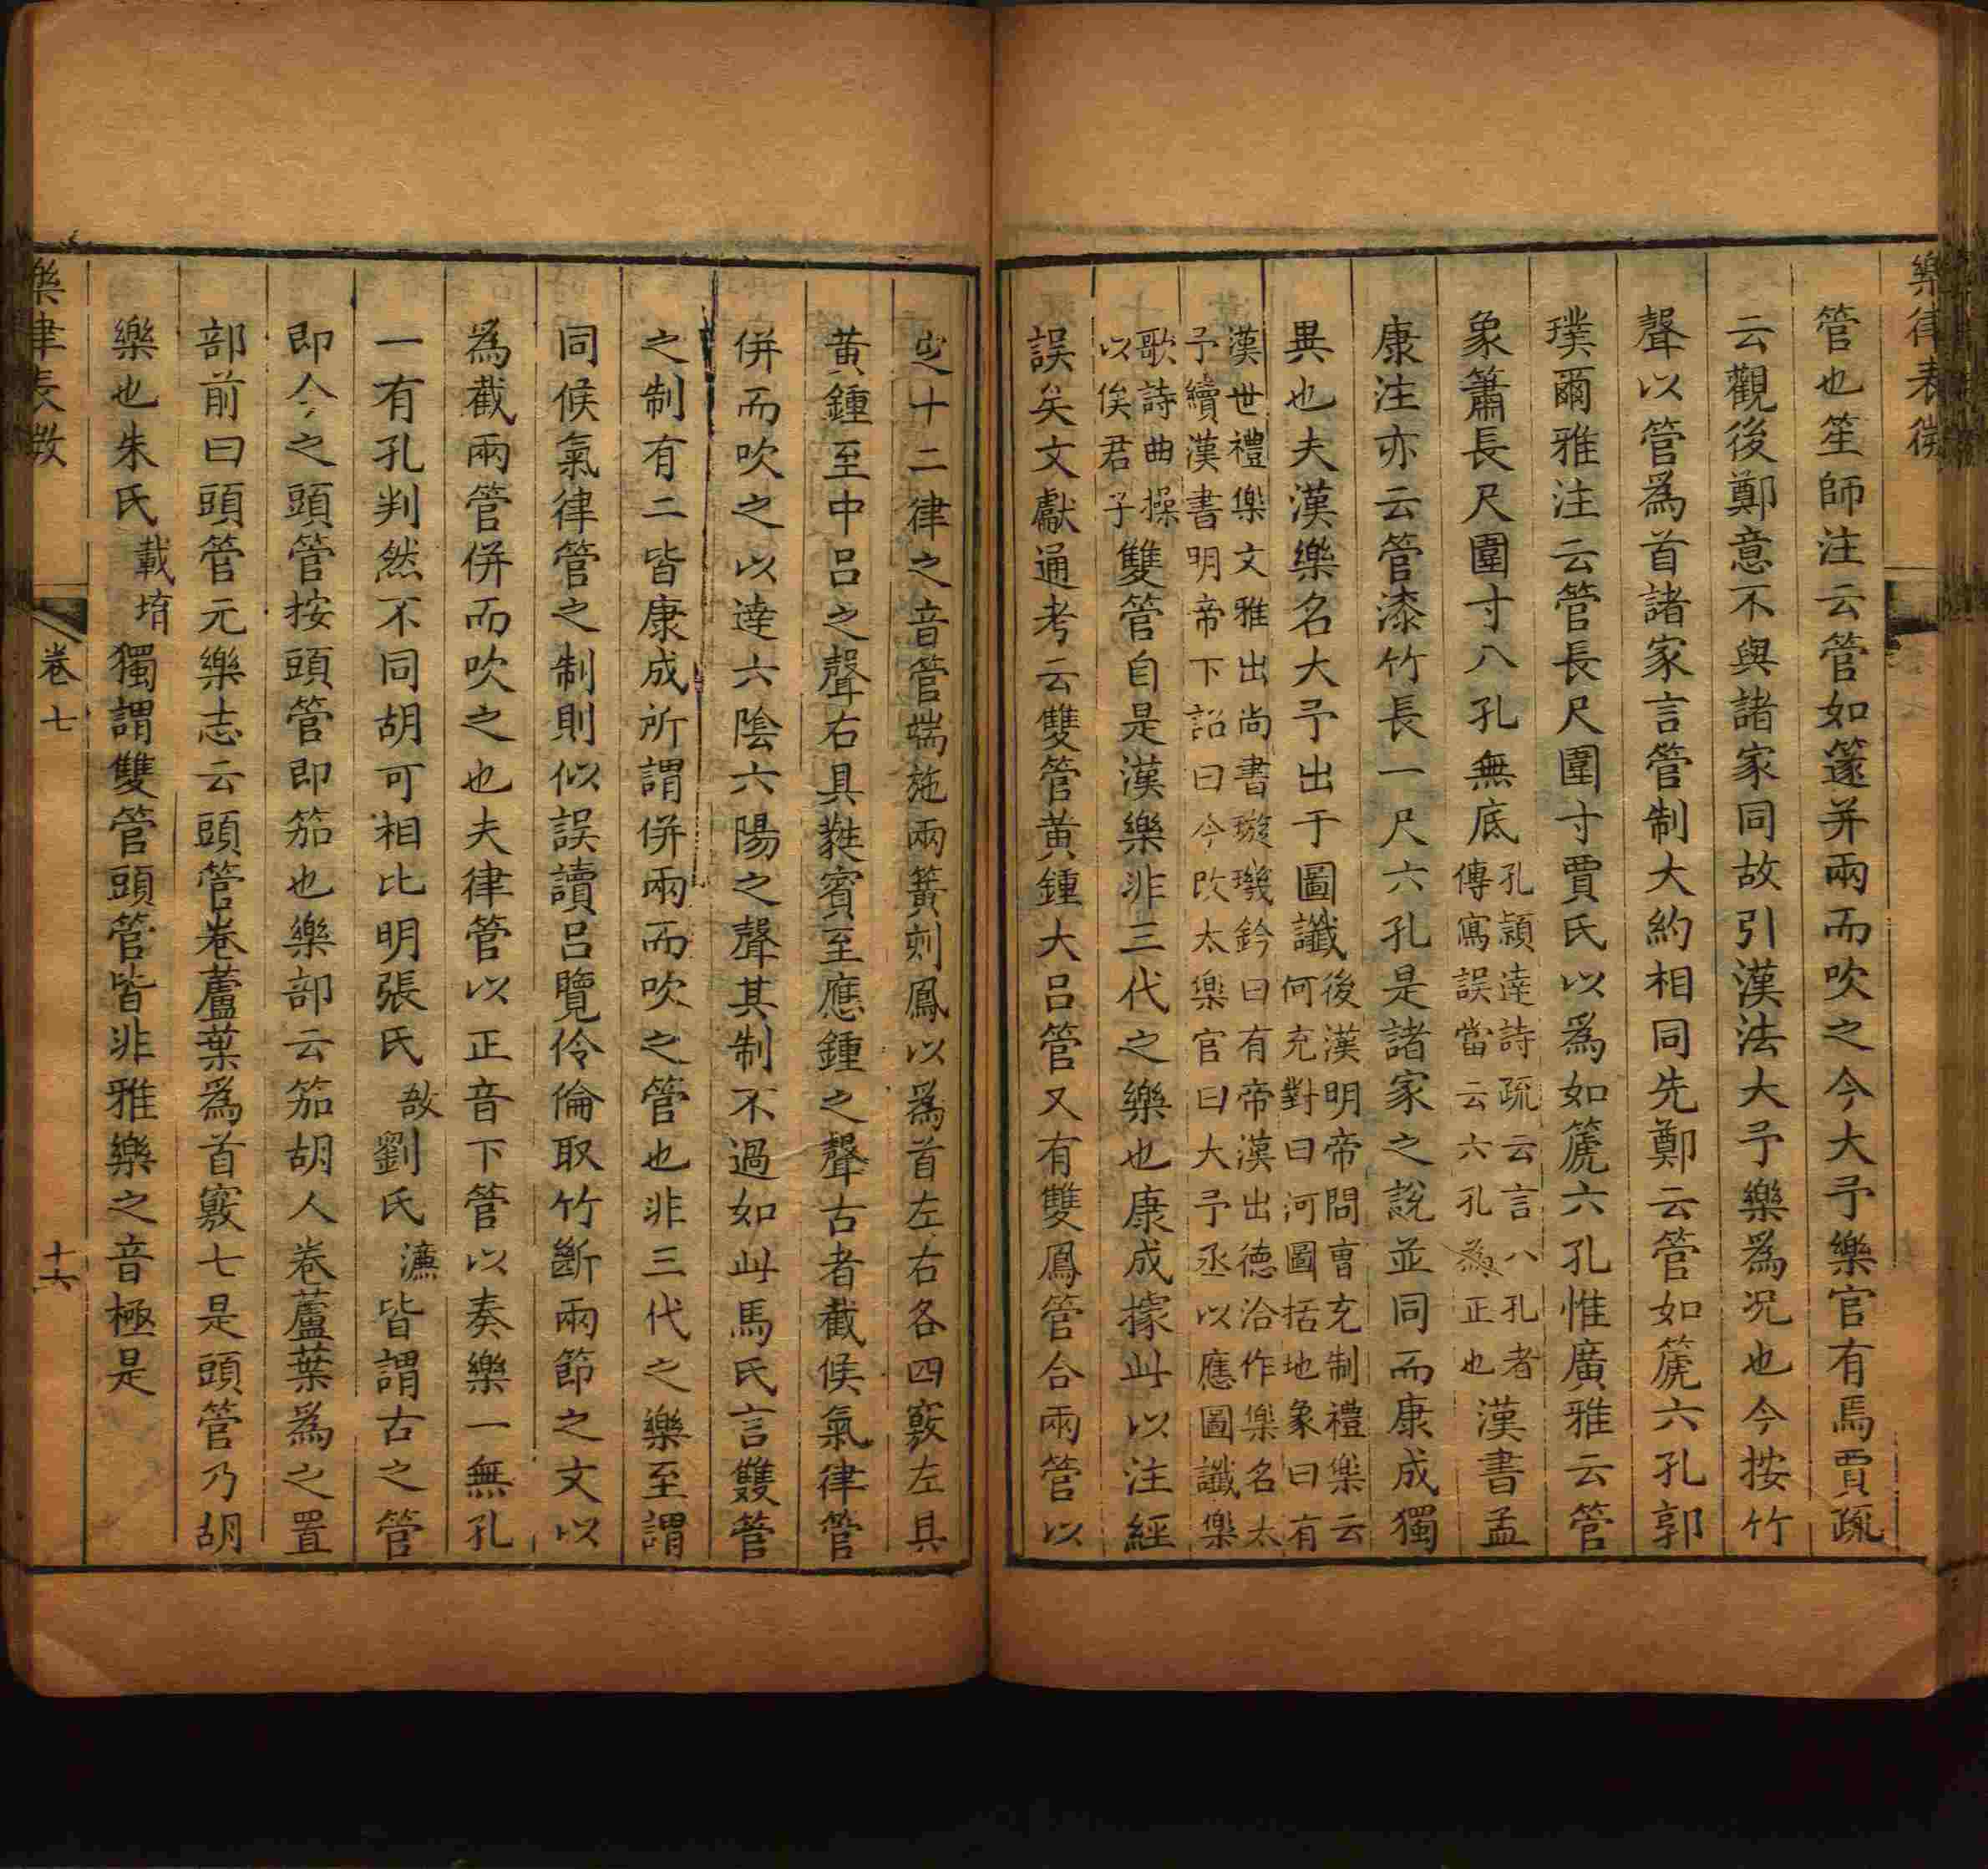 樂律表微
管也笙師注云管如篴并兩而吹之今大予樂官有焉賈疏
云觀後鄭意不與諸家同故引漢法大予樂爲况也今按竹
聲以管爲首諸家言管制大約相同先鄭云管如篪六孔郭
璞爾雅注云管長尺圍寸賈氏以爲如篪六孔惟廣雅云管
象簫長尺圍寸八孔無底孔潁達詩疏云言八孔者傳寫誤當云六孔為正也漢書孟
康注亦云管漆竹長一尺六孔是諸家之說並同而康成獨
異也夫漢樂名大予出于圖讖後漢明帝問曹充制禮樂云何充對曰河圖括地象曰有
漢世禮樂文雅出尚書璇璣鈐曰有帝漢出德洽作樂名太予續漢書明帝下詔曰今改太樂官曰大予丞以應圖讖樂
歌詩曲操以俟君子雙管自是漢樂非三代之樂也康成據此以注經
誤矣文獻通考云雙管黄鍾大呂管又有雙鳳管合兩管以
定十二律之音管端施兩簧刻鳳以爲首左右各四竅左具
黄鍾至中呂之聲右具蕤賓至應鍾之聲古者截候氣律管
併而吹之以達六陰六陽之聲其制不過如此馬氏言雙管
之制有二皆康成所謂併兩而吹之管也非三代之樂至謂
同候氣律管之制則似誤讀呂覽伶倫取竹斷兩節之文以
爲截兩管併而吹之也夫律管以正音下管以奏樂一無孔
一有孔判然不同胡可相比明張氏敔劉氏濂皆謂古之管
即今之頭管按頭管即笳也樂部云笳胡人卷蘆葉爲之置
部前曰頭管元樂志云頭管卷蘆葉爲首竅七是頭管乃胡
樂也朱氏載堉獨謂雙管頭管皆非雅樂之音極是
樂律表微
卷七
十六